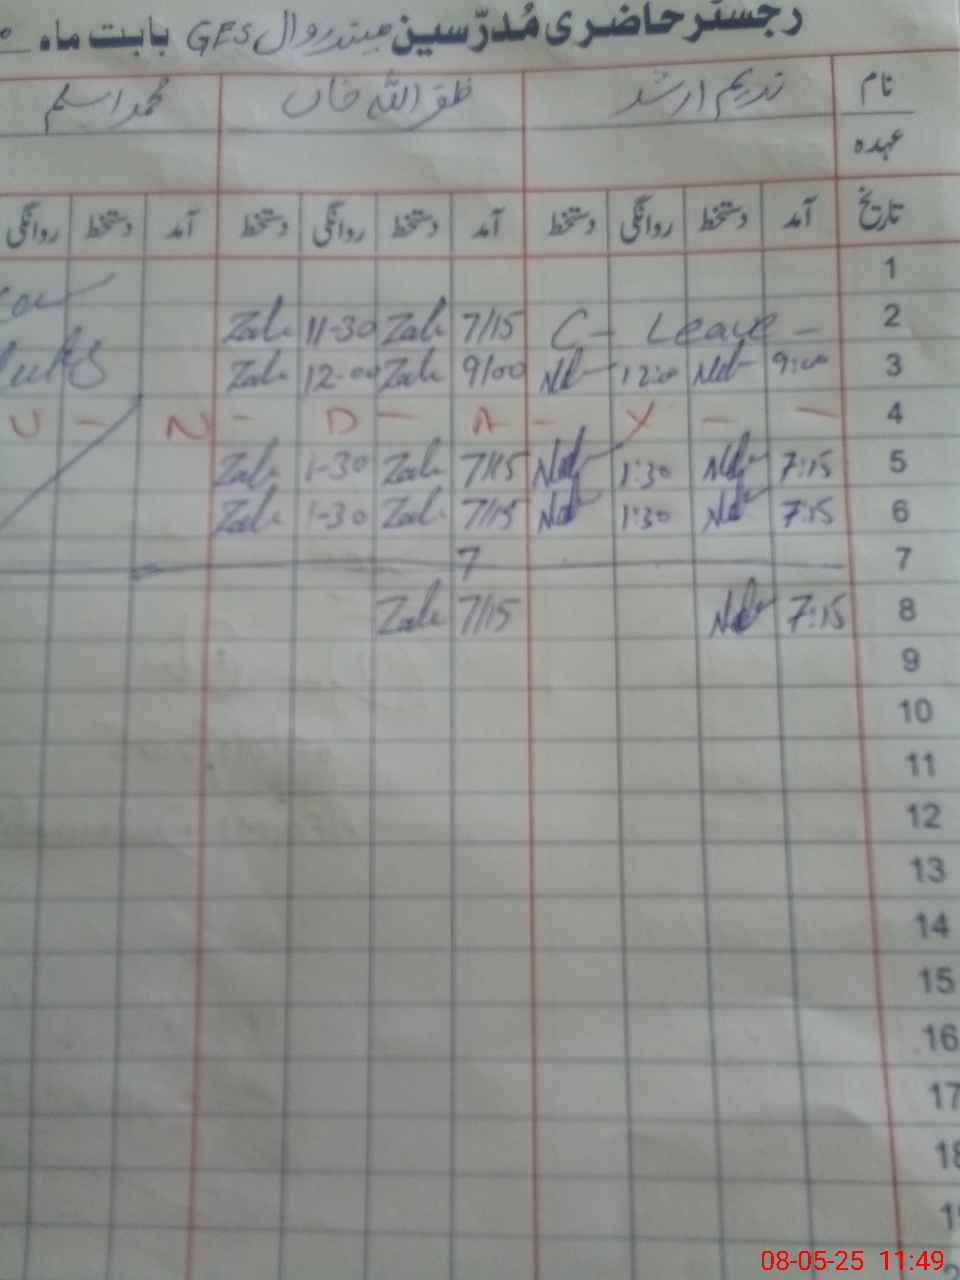 رجسٹر حاضری مُدرّسین میندروال GES بابت ماہ
نام ندیم ارشد ظفر اللہ خاں محمد اسلم
عہدہ
تاریخ آمد دستخط روانگی دستخط آمد دستخط روانگی دستخط آمد دستخط روانگی
1
2 C - Leave - 7/15 Zak 11-30 Zak
3 9:00 Nd 12:00 Nd 9/00 Zak 12-00 Zak
4 U - N - D - A - Y - -
5 7:15 Nd 1:30 Nd 7/15 Zak 1-30 Zak
6 7:15 Nd 1:30 Nd 7/15 Zak 1-30 Zak
7 7
8 7:15 Nd 7/15 Zak
9
10
11
12
13
14
15
16
17
18
08-05-25 11:49